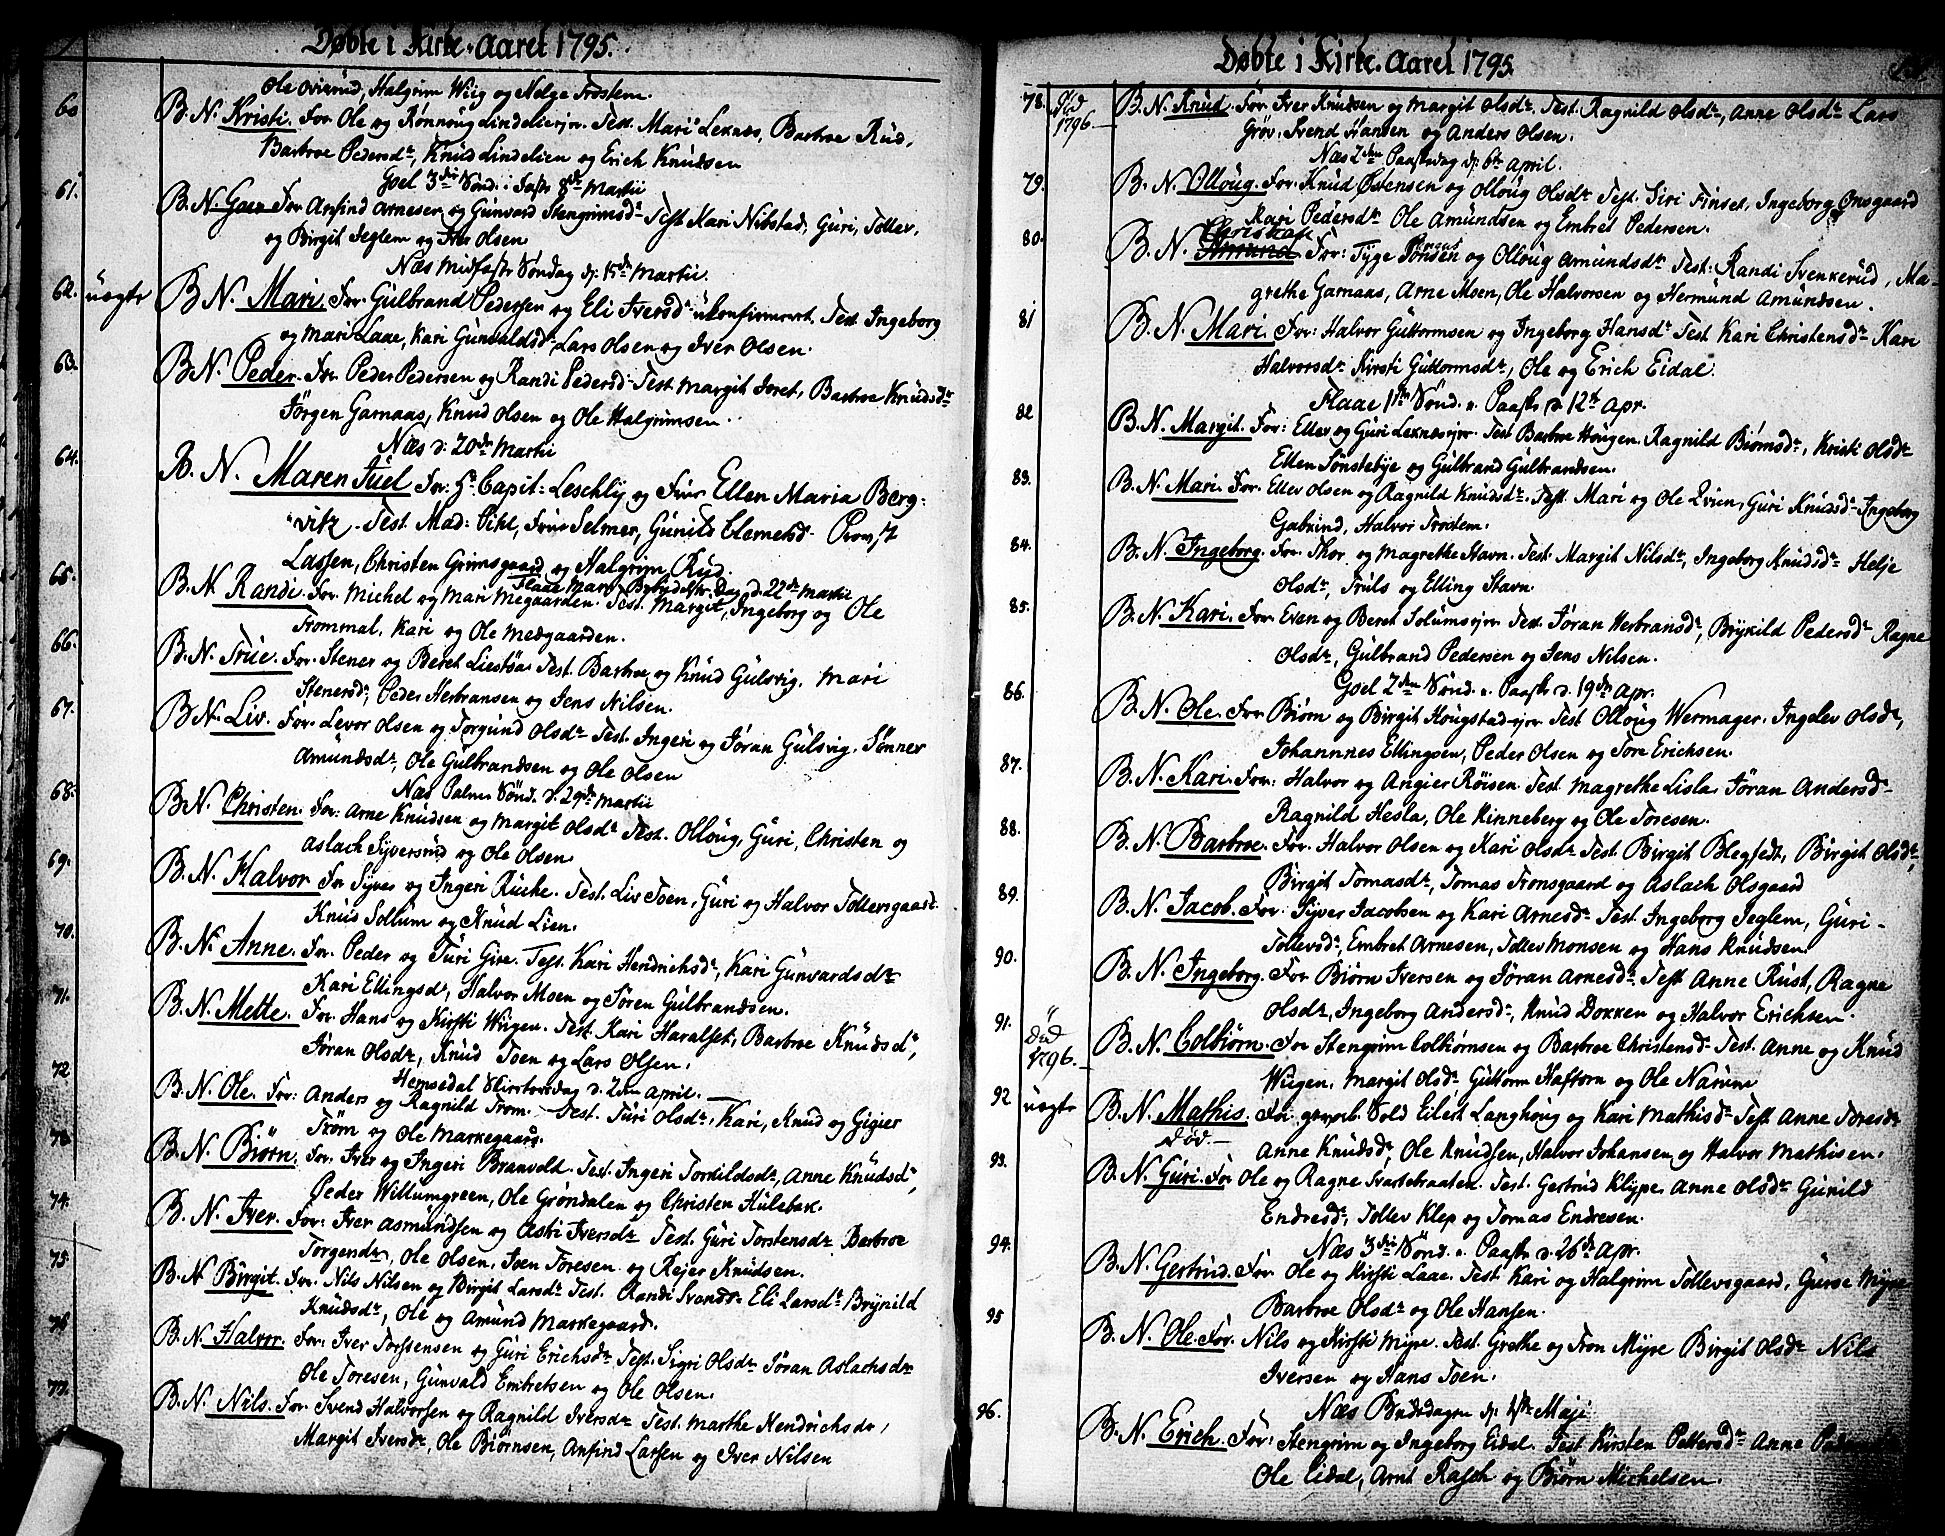 Døbte i Kirke. Aaret 1795.
Ole Oviرud, Halgrim Wiig og Helge Trostem.
60 B. N. Kristi. For Ole og Rønnoug Lindeliesejer. Test. Mari Leknæs, Barbroe Rud,
Barbroe Pedersdr, Knud Lindelien og Erich Knudsen
Goel 3die Sønd. i Faste 8de Martii
61. B. N. For Anfind Arnesen og Gunvard Stengrimsdr Test Kari Nibstad, Guri, Tollev,
og Birgit Jeglem og Iver Olsen
Næs Midfaste Søndag d. 15de Martii.
62. uægte B N. Mari. For Gulbrand Pedersen og Eli Iversdr ukonfirmeret. Test Ingeborg
og Mari Laae, Kari Gunvaldsdr, Lars Olsen og Iver Olsen.
63. B N. Peder. For Peder Pedersen og Randi Pedersd. Test. Margit Joret, Barbroe Knudsdr
Jørgen Garnaas, Knud Olsen og Ole Halgrimsen.
Næs d. 20de Martii
64. B. N. Maren Juel For: Hr Capit: Leschly og Frue Ellen Maria Berg-
vitz. Test. Mad: Pihl, Frue Selmer, Gunild Clemetsd. Provst
Lassen, Christen Grimsgaard og Halgrim Rud.
Flaae Mariæ Bebudelses Dag d. 22de Martii
65. B. N Randi. For Michel og Mari Megaarden. Test. Margit, Ingeborg og Ole
Trommal, Kari og Ole Medgaarden.
66. B. N. True. For. Stener og Beret Liestøa Test Barbroe og Knud Gulsvig, Mari
Stenersdr, Peder Herbransen og Jens Nilsen.
67. B N. Liv. For. Levor Olsen og Torgund Olsdr Test. Ingeri og Jøran Gulsvig. Sønnev
Amundsdr, Ole Gulbrandsen og Ole Olsen
Næs Palme Sønd. d. 29de Martii
68. B N. Christen. For: Arne Knudsen og Margit Olsdr Test. Olloug, Guri, Christen og
Aslach Syversrud og Ole Olsen.
69. B. N. Halvor For Syver og Ingeri Ruche. Test. Liv Toen, Guri og Halvor Tollevsgaard.
Knud Sollum og Knud Lien.
70. B. N. Anne. For. Peder og Turi Gire. Test. Kari Hendrichsdr, Kari Gunvardsdr
Kari Ellingsdr, Halvor Moen og Søren Gulbrandsen.
71. B. N. Mette. For Hans og Kirsti Wiigen. Test. Kari Haralset, Barbroe Knudsdr,
Jøran Olsdr, Knud Toen og Lars Olsen.
Hemsedal Skiertorsdag d. 2den April.
72 B. N. Ole. For: Anders og Ragnild Trøm. Test. Turi Olsdr, Kari, Knud og Gigier
Trøm og Ole Markegaard.
73. B. N. Biørn. For. Iver og Ingeri Branvold. Test. Ingeri Torkildsdr, Anne Knudsdr,
Peder Willumgreen, Ole Grøndalen og Christen Hulebak.
74. B. N. Iver. For: Iver Asmundsen og Astri Iversdr Test. Guri Torstensdr Barbroe
Torgersdr, Ole Olsen, Joen Toresen og Rejer Knudsen.
75. B. N Birgit. For. Nils Nilsen og Birgit Larsdr Test. Randi Svendsdr Eli Larsdr Brynild
Knudsdr, Ole og Amund Markegaard.
76 B. N. Halvor. For: Iver Torstensen og Guri Erichsdr Test. Sigri Olsdr Jøran Aslachsdr
Ole Toresen, Gunvald Embretsen og Ole Olsen.
77. B. N. Nils. For. Svend Halvorsen og Ragnild Iversdr Test. Marthe Hendrichsdr,
Margit Iversdr, Ole Biørnsen, Anfind Larsen og Iver Nilsen
Døbte i Kirke. Aaret 1795.
78. Død 1796 B. N. Knud. For Iver Knudsen og Margit Olsdr. Test. Ragnild Olsdr, Anne Olsdr Lars
Grøv. Svend Hansen og Anders Olsen.
Næs 2den Paaskedag d. 6te April.
79. B. N. Olloug. For. Knud Østensen og Olloug Olsdr. Test. Siri Finset, Ingeborg Onsgaard
Kari Pedersdr Ole Amundsen og Embret Pedersen.
80. B. N. Christofer For: Tyge Jonsen og Olloug Amundsdr Test: Randi Svenkerud, Ma-
grethe Garnaas, Arne Moen, Ole Halvorsen og Hermund Amundsen.
81 B. N. Mari. For: Halvor Guttormsen og Ingeborg Hansdr Test Kari Christensdr Kari
Halvorsdr Kirsti Guttormsdr, Ole og Erich Eidal.
Flaae 1ste Sønd. e. Paaske d 12te Apr.
82 B. N. Margit. For: Ellev og Guri Leknæsejer. Test Barbroe Hougen. Ragnild Biørnsdr, Kristi Olsdr
Ellen Sønstebye og Gulbrand Gulbrandsen.
83. B. N. Mari. For. Ellev Olsen og Ragnild Knudsdr. Test. Mari og Ole Qvien, Guri Knudsdr Ingeborg
Gabrind, Halvor Trostem.
84. B. N. Ingeborg. For. Thor og Magrethe Stavn. Test. Margit Nilsdr, Ingeborg Knudsdr Helje
Olsdr, Truls og Elling Stavn.
85. B. N. Kari. For. Even og Beret Solumsejer Test. Jøran Herbransdr, Brynild Pedersdr Ragne
Olsdr, Gulbrand Pedersen og Jens Nilsen.
Goel 2den Sønd. e. Paaske d. 19de Apr.
86. B. N. Ole. For Biørn og Birgit Hougstadejer Test Olloug Wermager. Ingelev Olsdr,
Johannnes Ellingsen, Peder Olsen og Tore Erichsen.
87. B. N. Kari. For: Halvor og Angier Røisen. Test Magrethe Lisla. Jøran Andersd-
Ragnild Hesla, Ole Kinneberg og Ole Toresen.
88. B. N. Barbroe. For. Halvor Olsen og Kari Olsdr Test. Birgit Blegsedt, Birgit Olsdr,
Birgit Tomasdr, Tomas Tronsgaard og Aslach Olsgaard
89. B. N. Jacob. For: Syver Jacobsen og Kari Arnesdr Test. Ingeborg Jeglem, Guri-
Tollevsdr, Embret Arnesen, Tollev Monsen og Hans Knudsen.
90. B. N. Ingeborg. For Biørn Iversen og Jøran Arnesdr Test Anne Rust, Ragne
Olsdr, Ingeborg Andersdr, Knud Dokken og Halvor Erichsen.
91. Død 1796. B. N. Colbiørn. For Stengrim Colbiørnsen og Barbroe Christensdr Test. Anne og Knud
Wiigen. Margit Olsdr Guttorm Haftorn og Ole Narum
92 uægte B. N. Mathis. For gevorb. Sold Eilert Langhoug og Kari Mathisdr Test Anne Toresdr
Død. Anne Knudsdr, Ole Knudsen, Halvor Johansen og Halvor Mathisen.
93. B. N. Guri. For Ole og Ragne Svartebraaten. Test. Gertrud Klype. Anne Olsdr Gunild
Endresdr, Tollev Klep og Tomas Endresen.
Næs 3die Sønd. e. Paaske d. 26de Apr.
94. B. N. Gertrud. For Ole og Kirsti Laae. Test Kari og Halgrim Tollevsgaard, Guroe Myre
Barbroe Olsdr og Ole Hansen.
95 B. N. Ole. For. Nils og Kirsti Myre. Test. Grethe og Tron Myre Birgit Olsdr Nils
Iversen og Hans Toen.
Næs Bededagen d. 1ste Maji
96. B. N. Erich. For: Stengrim og Ingeborg Eidal. Test Kirsten Pettersdr Anne
Ole Eidal, Arnt Rasch og Biørn Michelsen.